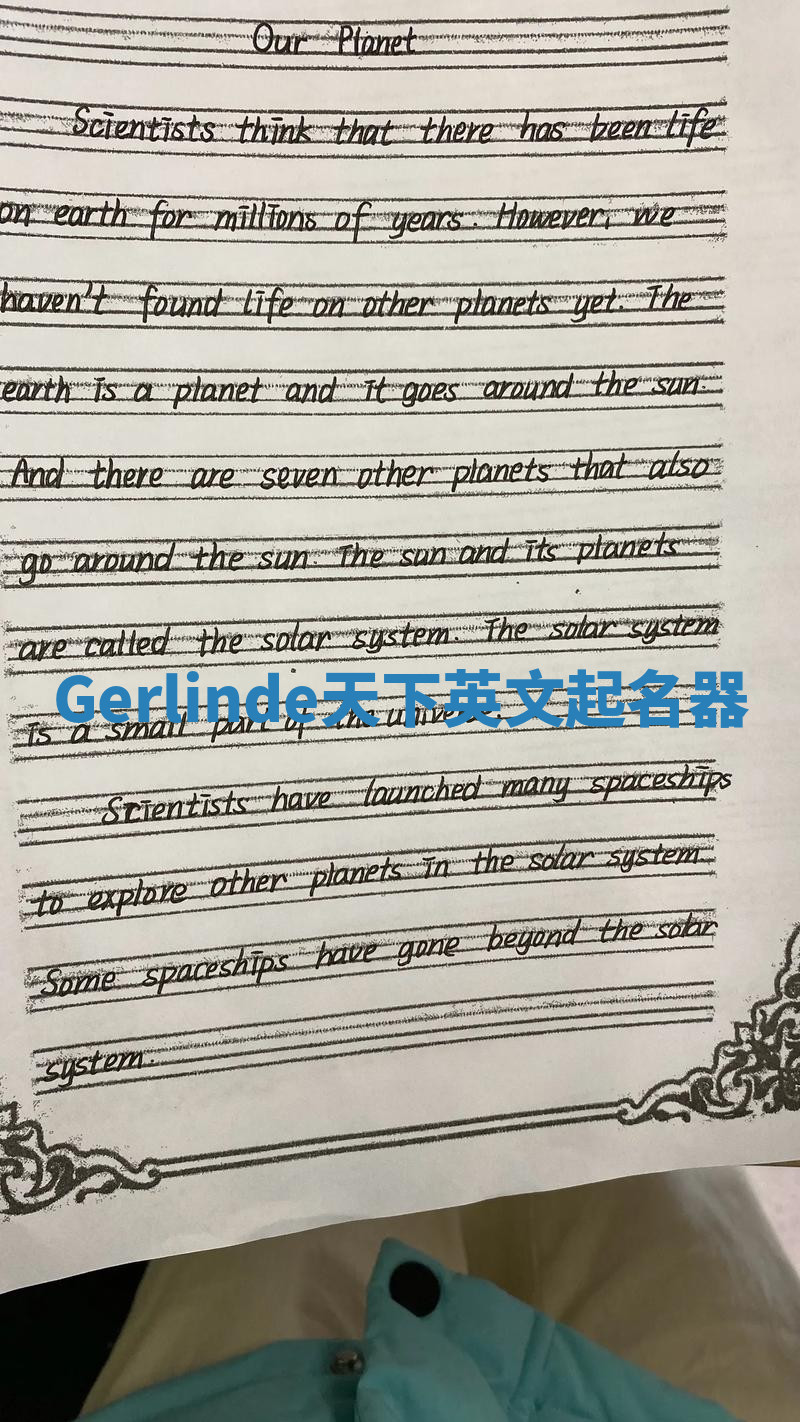 Our Planet
Scientists think that there has been life
on earth for millions of years. However, we
haven't found life on other planets yet. The
earth is a planet and it goes around the sun.
And there are seven other planets that also
go around the sun. The sun and its planets
are called the solar system. The solar system
Gerlinde天下英文起名器
is a small part of the universe.
Scientists have launched many spaceships
to explore other planets in the solar system.
Some spaceships have gone beyond the solar
system.